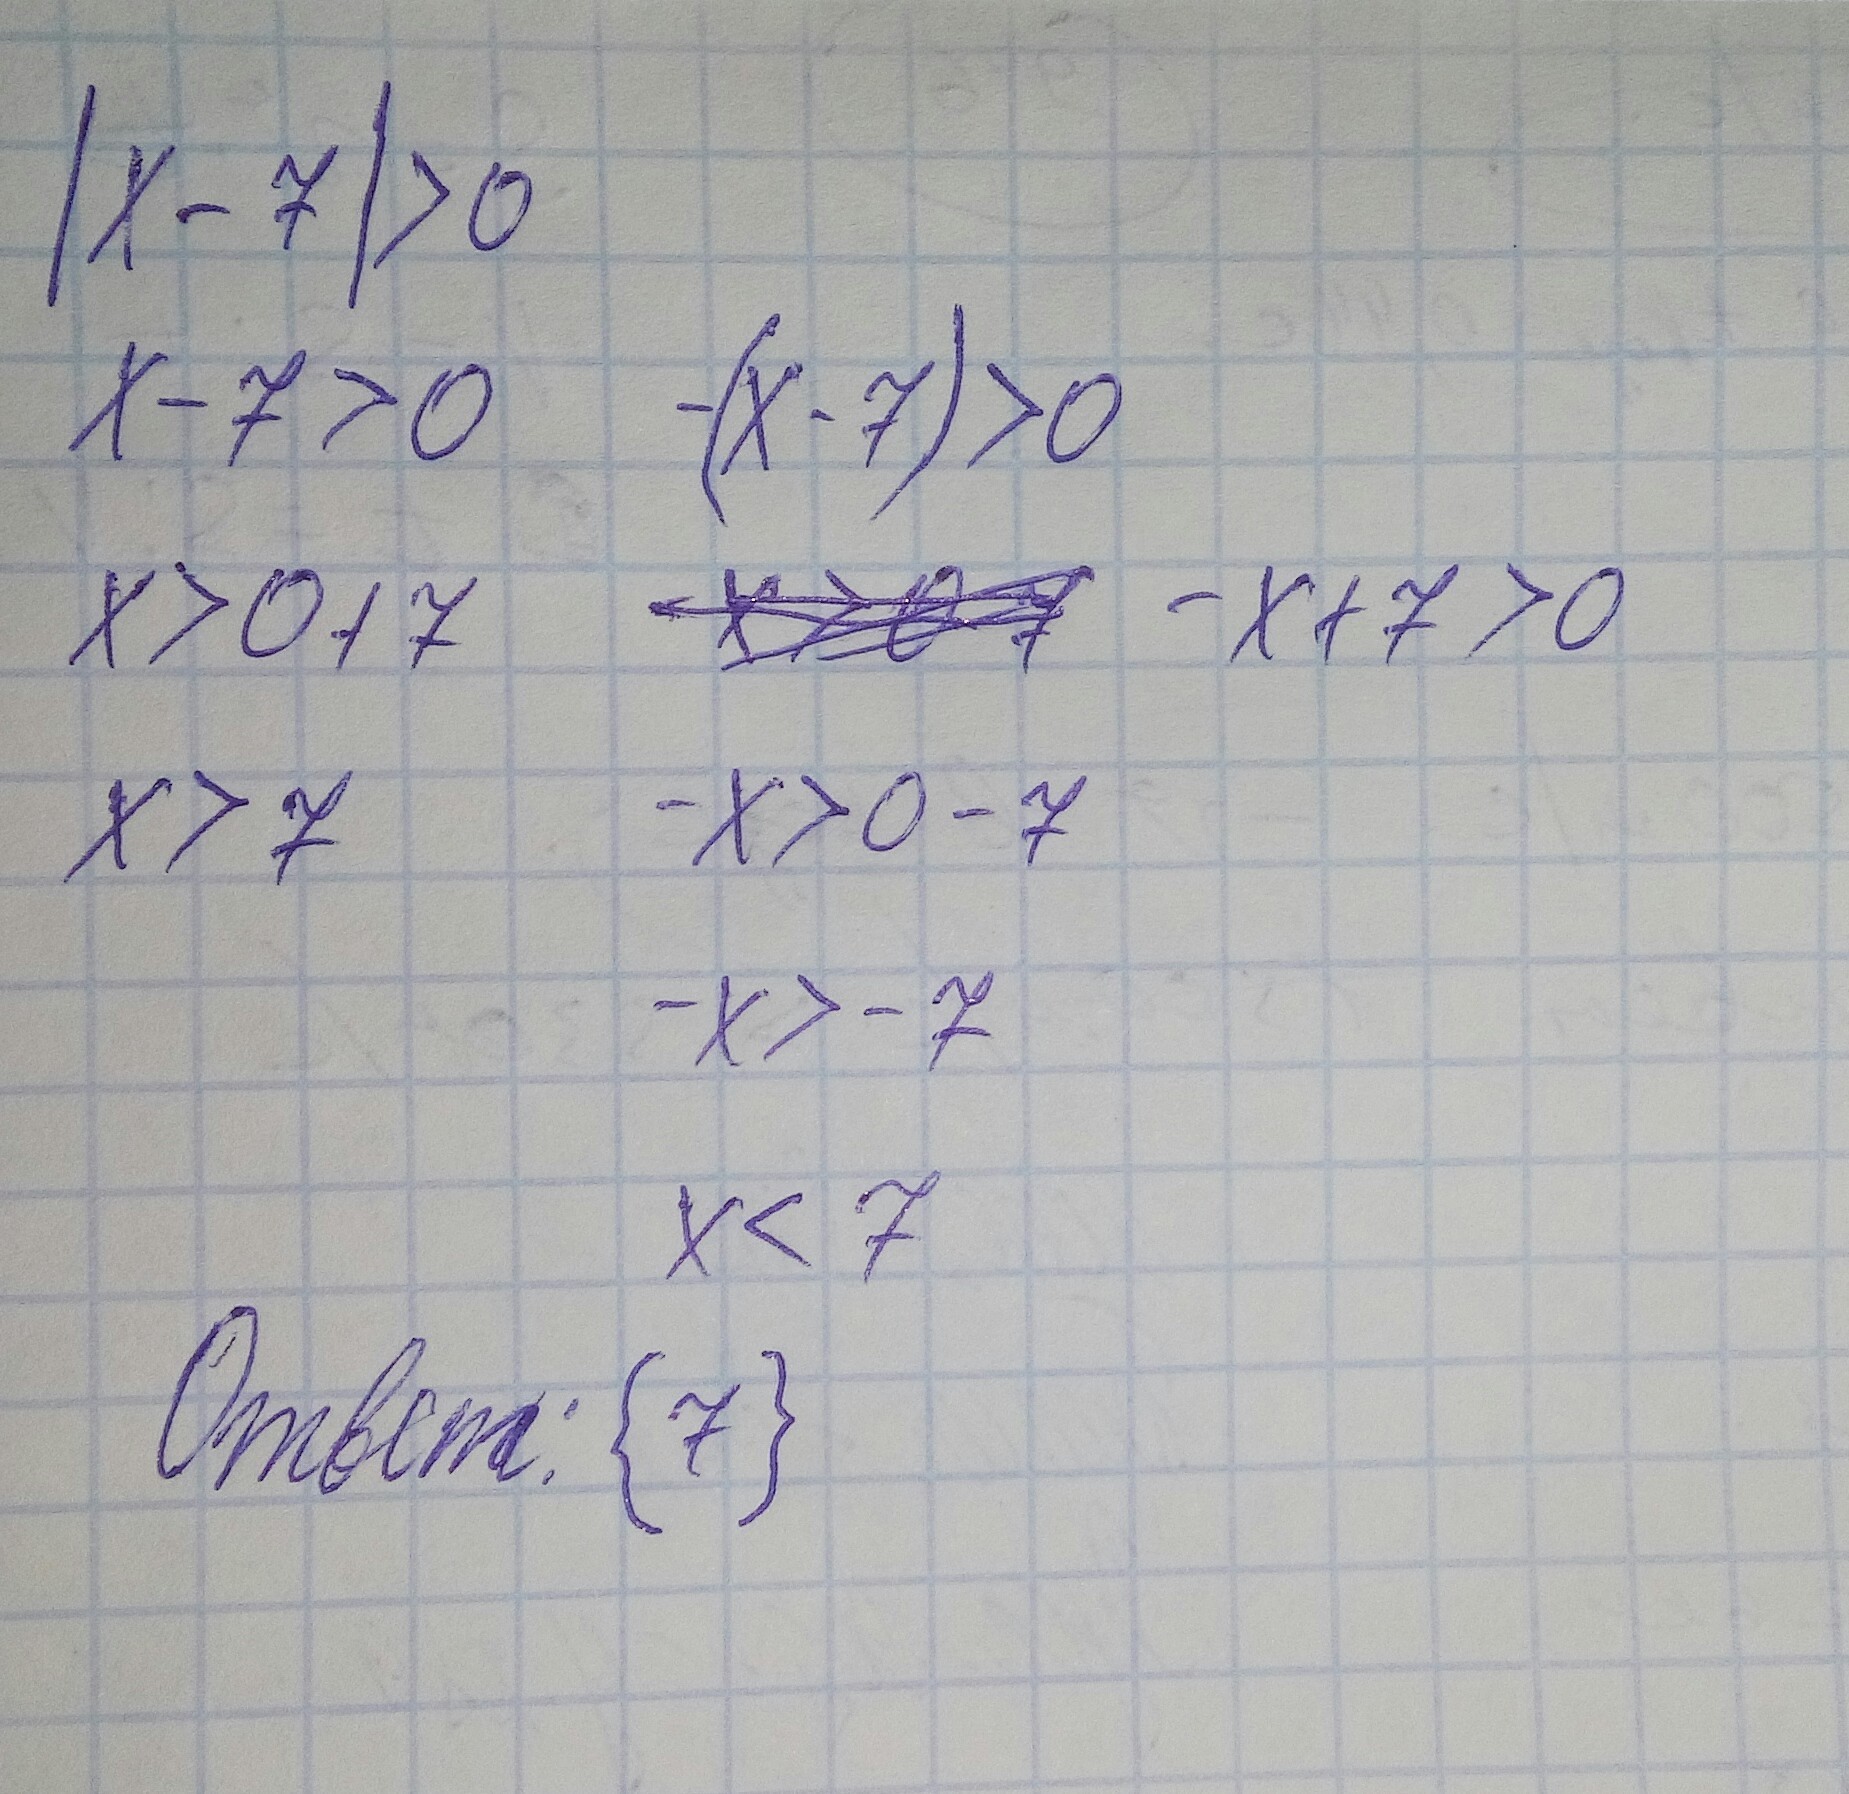 |x-7|>0
x-7>0 -(x-7)>0
x>0+7 -x>0-7 -x+7>0
x>7 -x>0-7
-x>-7
x<7
Ответ: {7}